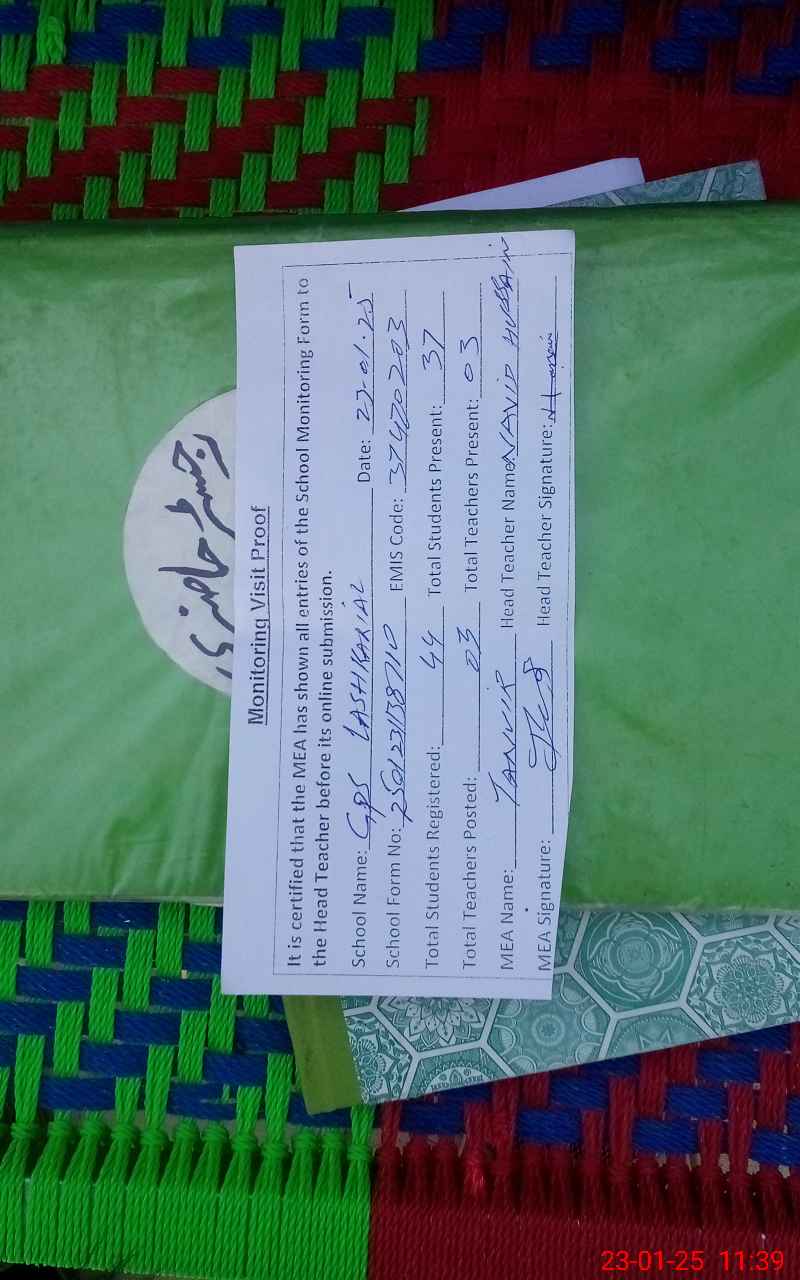 رجسٹر حاضری
Monitoring Visit Proof
It is certified that the MEA has shown all entries of the School Monitoring Form to
the Head Teacher before its online submission.
School Name: GPS LASHKARIAL Date: 23-01-25
School Form No: EMIS Code: 37420203
Total Students Registered: 44 Total Students Present: 37
Total Teachers Posted: 03 Total Teachers Present: 03
MEA Name: TANVIR Head Teacher Name: NAVID HUSSAIN
MEA Signature: Head Teacher Signature:
23-01-25 11:39